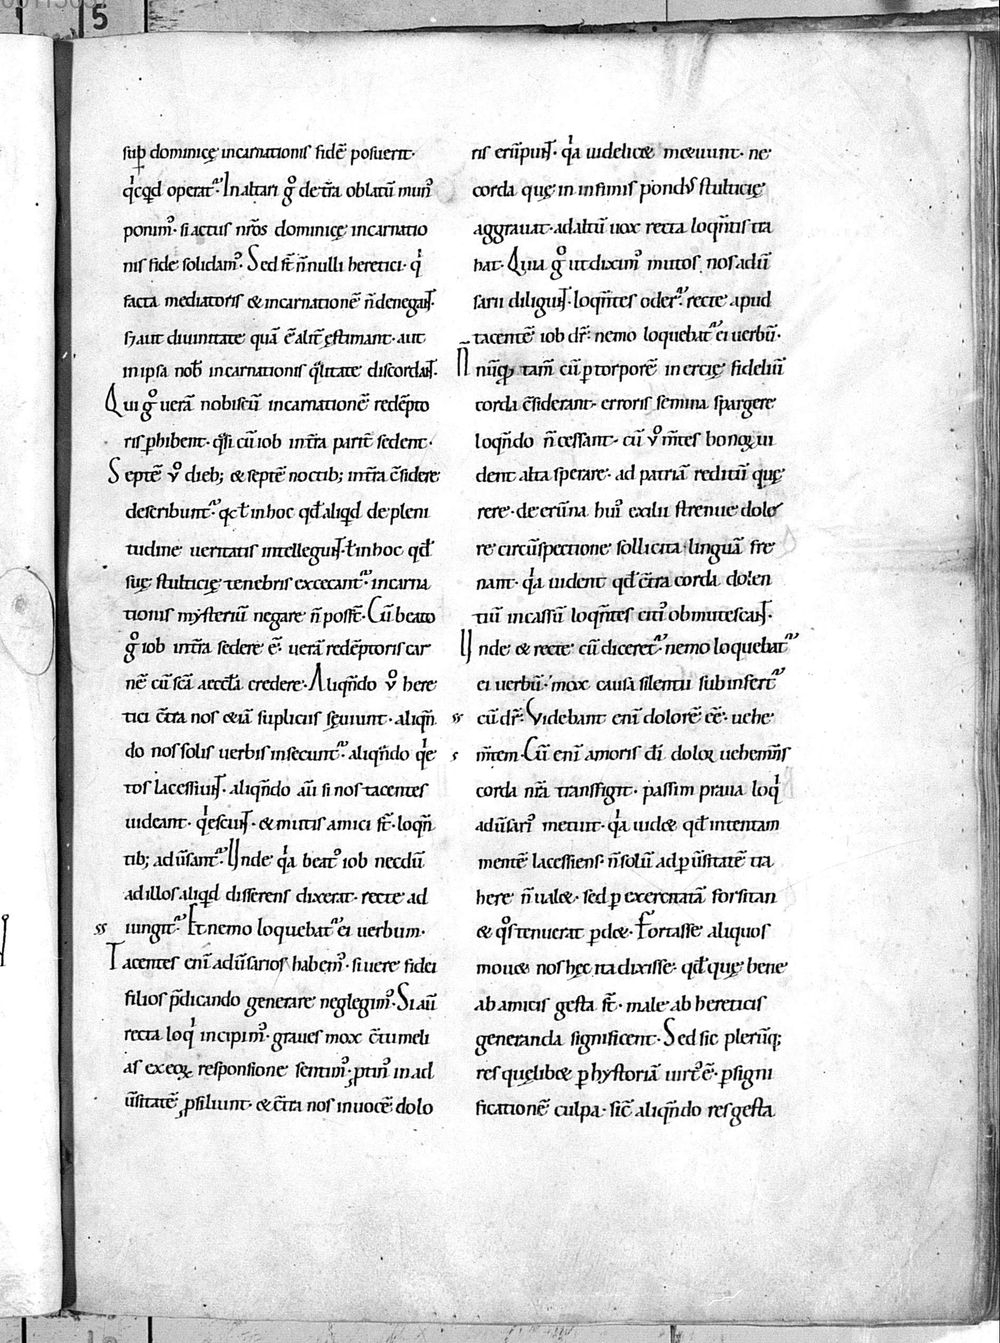 sup dominicę incarnationis fidē posuerit·
q'cq̄d operat᷑· In altari g̊ de t̄ra oblatū mun᷒
ponim᷒· si actus nr̄os dominicę incarnatio
nis fide solidam᷒· Sed st̄ n̄nulli heretici· q'
facta mediatoris & incarnationē n̄ denegaɴt·
s; aut diuinitate quā ē alit̄ ęstimant· aut
in ipsa nob̄ incarnationis q̄litate discordaɴt·
Qui g̊ uerā nobiscū incarnationē redēpto
ris ꝓhibent· q̄si cū iob int̄ra parit̄ sedent·
Septē v̊ dieb; & septē noctib; int̄ra c̄sidere
describunt᷑· q' ł in hoc qđ aliq̄d de pleni
tudine ueritatis intellegūt· ł in hoc qđ
suę stulticię tenebris excecant᷑· incarna
tionis mẏsteriū negare n̄ possr̄· Cū beato
g̊ iob int̄ra sedere ē· uerā redēptoris car
nē cū sc̄a accl̄a credere· Aliqn̄do v̊ here
tici c̄tra nos &iā supliciis sęuiunt· aliqn̄
do nos solis uerbis insecunt᷑· aliqn̄do q'e
tos lacessiuɴt· aliqn̄do aū si nos tacentes
uideant· q'escuɴt· & mutis amici st̄· loqn̄
tib; adūsant᷑· Unde q'a beat᷒ iob necdū
ad illos aliq̄d disserens dixerat· recte ad
iungit᷑· Et nemo loquebat᷑ ei uerbum·
Tacentes eni adūsarios habem᷒· si uere fidei
filios p̄dicando generare neglegim᷒· Si aū
recta loq' incipim᷒· graues mox c̄tumeli
as ex eoꝝ responsione sentim᷒· ꝓtin᷒ in ad
ūsitatē ꝓsiliunt· & c̄tra nos in uocē dolo
ris erūpuɴt· q'a uidelic& m&uunt· ne
corda quę in infimis pond᷒ stulticię
aggrauat· ad altū uox recta loqn̄tis tra
hat· Quia g̊ ut dixim᷒ mutos nos adū
sarii diliguɴt· loqn̄tes oder᷑· recte apud
tacentē iob dr̄· nemo loquebat᷑ ei uerbū·
Nūqꝫ tam̄ cū ꝑ torporē inertię fideliū
corda c̄siderant· erroris semina spargere
loqn̄do n̄ cessant· cū v̊ m̄tes bonoꝝ ui
dent alta sperare· ad patriā reditū quę
rere· de erūna hui᷒ exilii strenue dole
re circūspectione sollicita linguā fre
nant· q'a uident qđ c̄tra corda dolen
tiū incassū loqn̄tes cito obmutescaɴt·
Unde & recte cū diceret᷑· nemo loquebat᷑
ei uerbū· mox causā silentii subinfert᷑
cū dr̄· Videbant eni dolorē ēē· uehe
m̄tem· Cū eni amoris dī dolor uehemn̄s
corda nr̄a transfigit· passim praua loq'
adūsari᷒ metuit· q'a uid& qđ intentam
mentē lacessiens· n̄ solū ad ꝑūsitatē tra
here n̄ ual&· sed ꝑ exercitatā forsitan
& q̊s tenuerat ꝑd&· Fortasse aliquos
mou& nos hęc ita dixisse· qđ quę bene
ab amicis gesta st̄· male ab hereticis
generanda significent· Sed sic plerūq;
res quęlib& ꝑ hystoriā uirt᷒ ē· ꝑ signi
ficationē culpa· sic̄ aliqn̄do res gesta